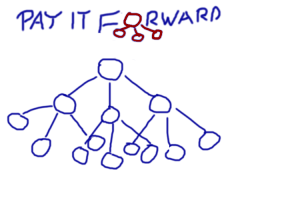 PAY IT FORWARD